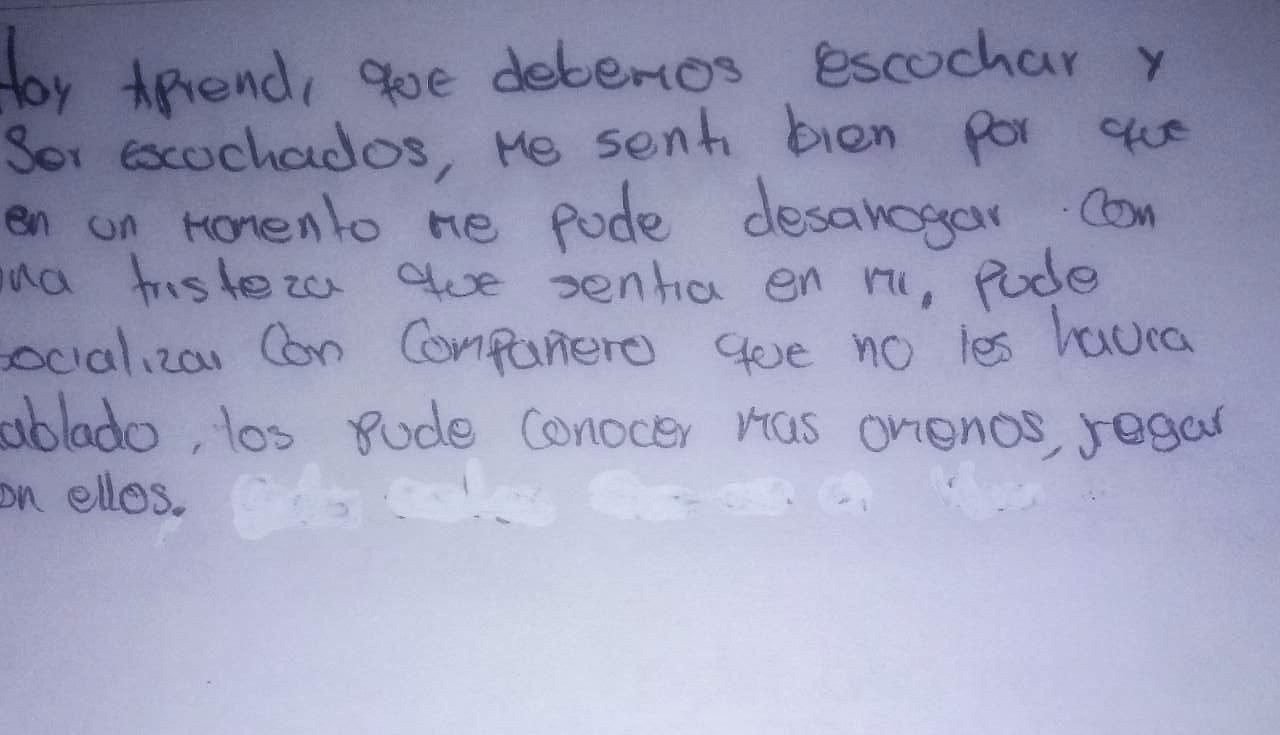 Hoy Aprendi que debemos escochar y
Ser escochados, Me senti bien por que
en un momento me pude desahogar con
una tristeza que sentia en mi, pude
socializar Con Compañero que no les havia
ablado, los pude conocer mas omenos, jegar
on ellos.